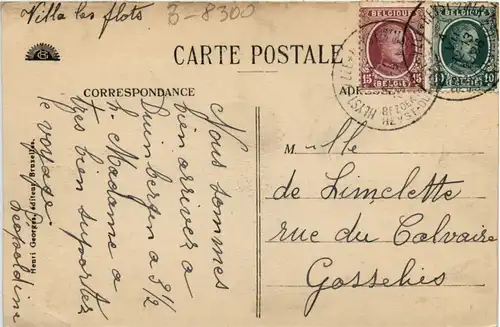 Villa les flots
B-8300
CARTE POSTALE
CORRESPONDANCE
ADRESSE
BELGIQUE
15 15
BELGIE
BELGIQUE
10 10
BELGIE
HEYST
BEZOEK
HEYST
Nous sommes
bien arrivés a
Duinbergen a 3½
h. Madame a
tres bien suportez
le voyage.
Leopoldine
Henri Georges, éditeur, Bruxelles.
M lle
de Limelette
rue du Calvaire
Gosselies